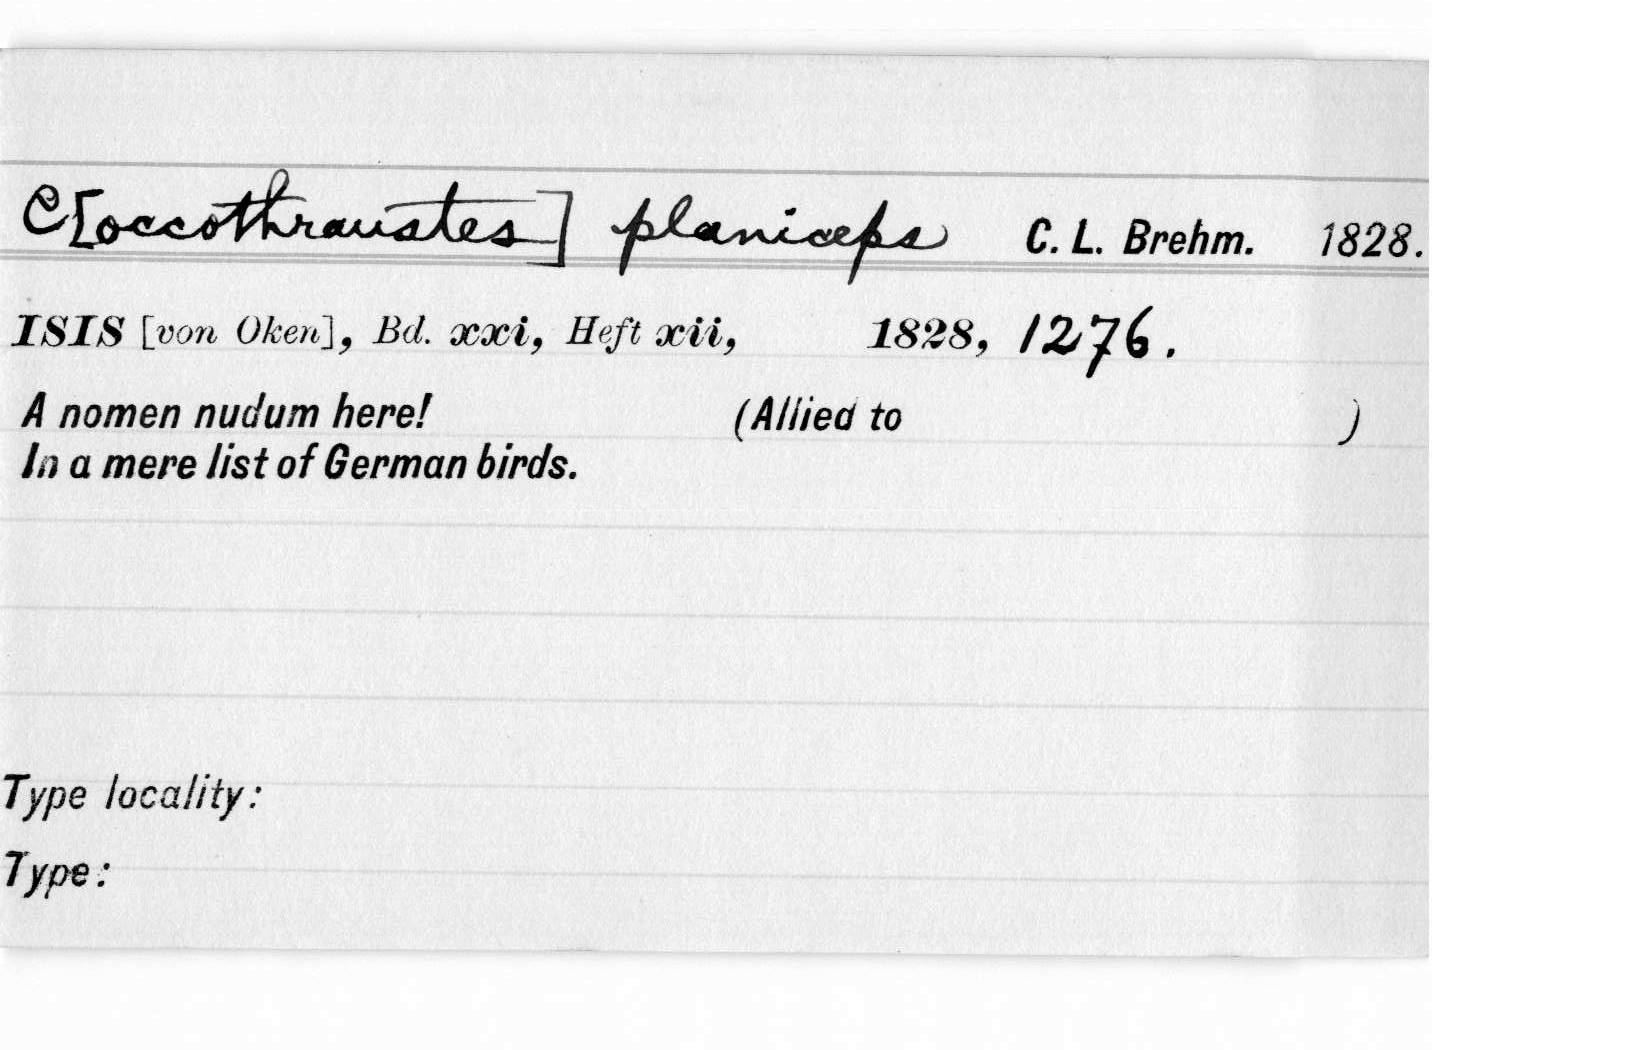 C[occothraustes] planiceps C. L. Brehm. 1828.
ISIS [von Oken], Bd. xxi, Heft xii, 1828, 1276.
A nomen nudum here! (Allied to )
In a mere list of German birds.
Type locality:
Type: